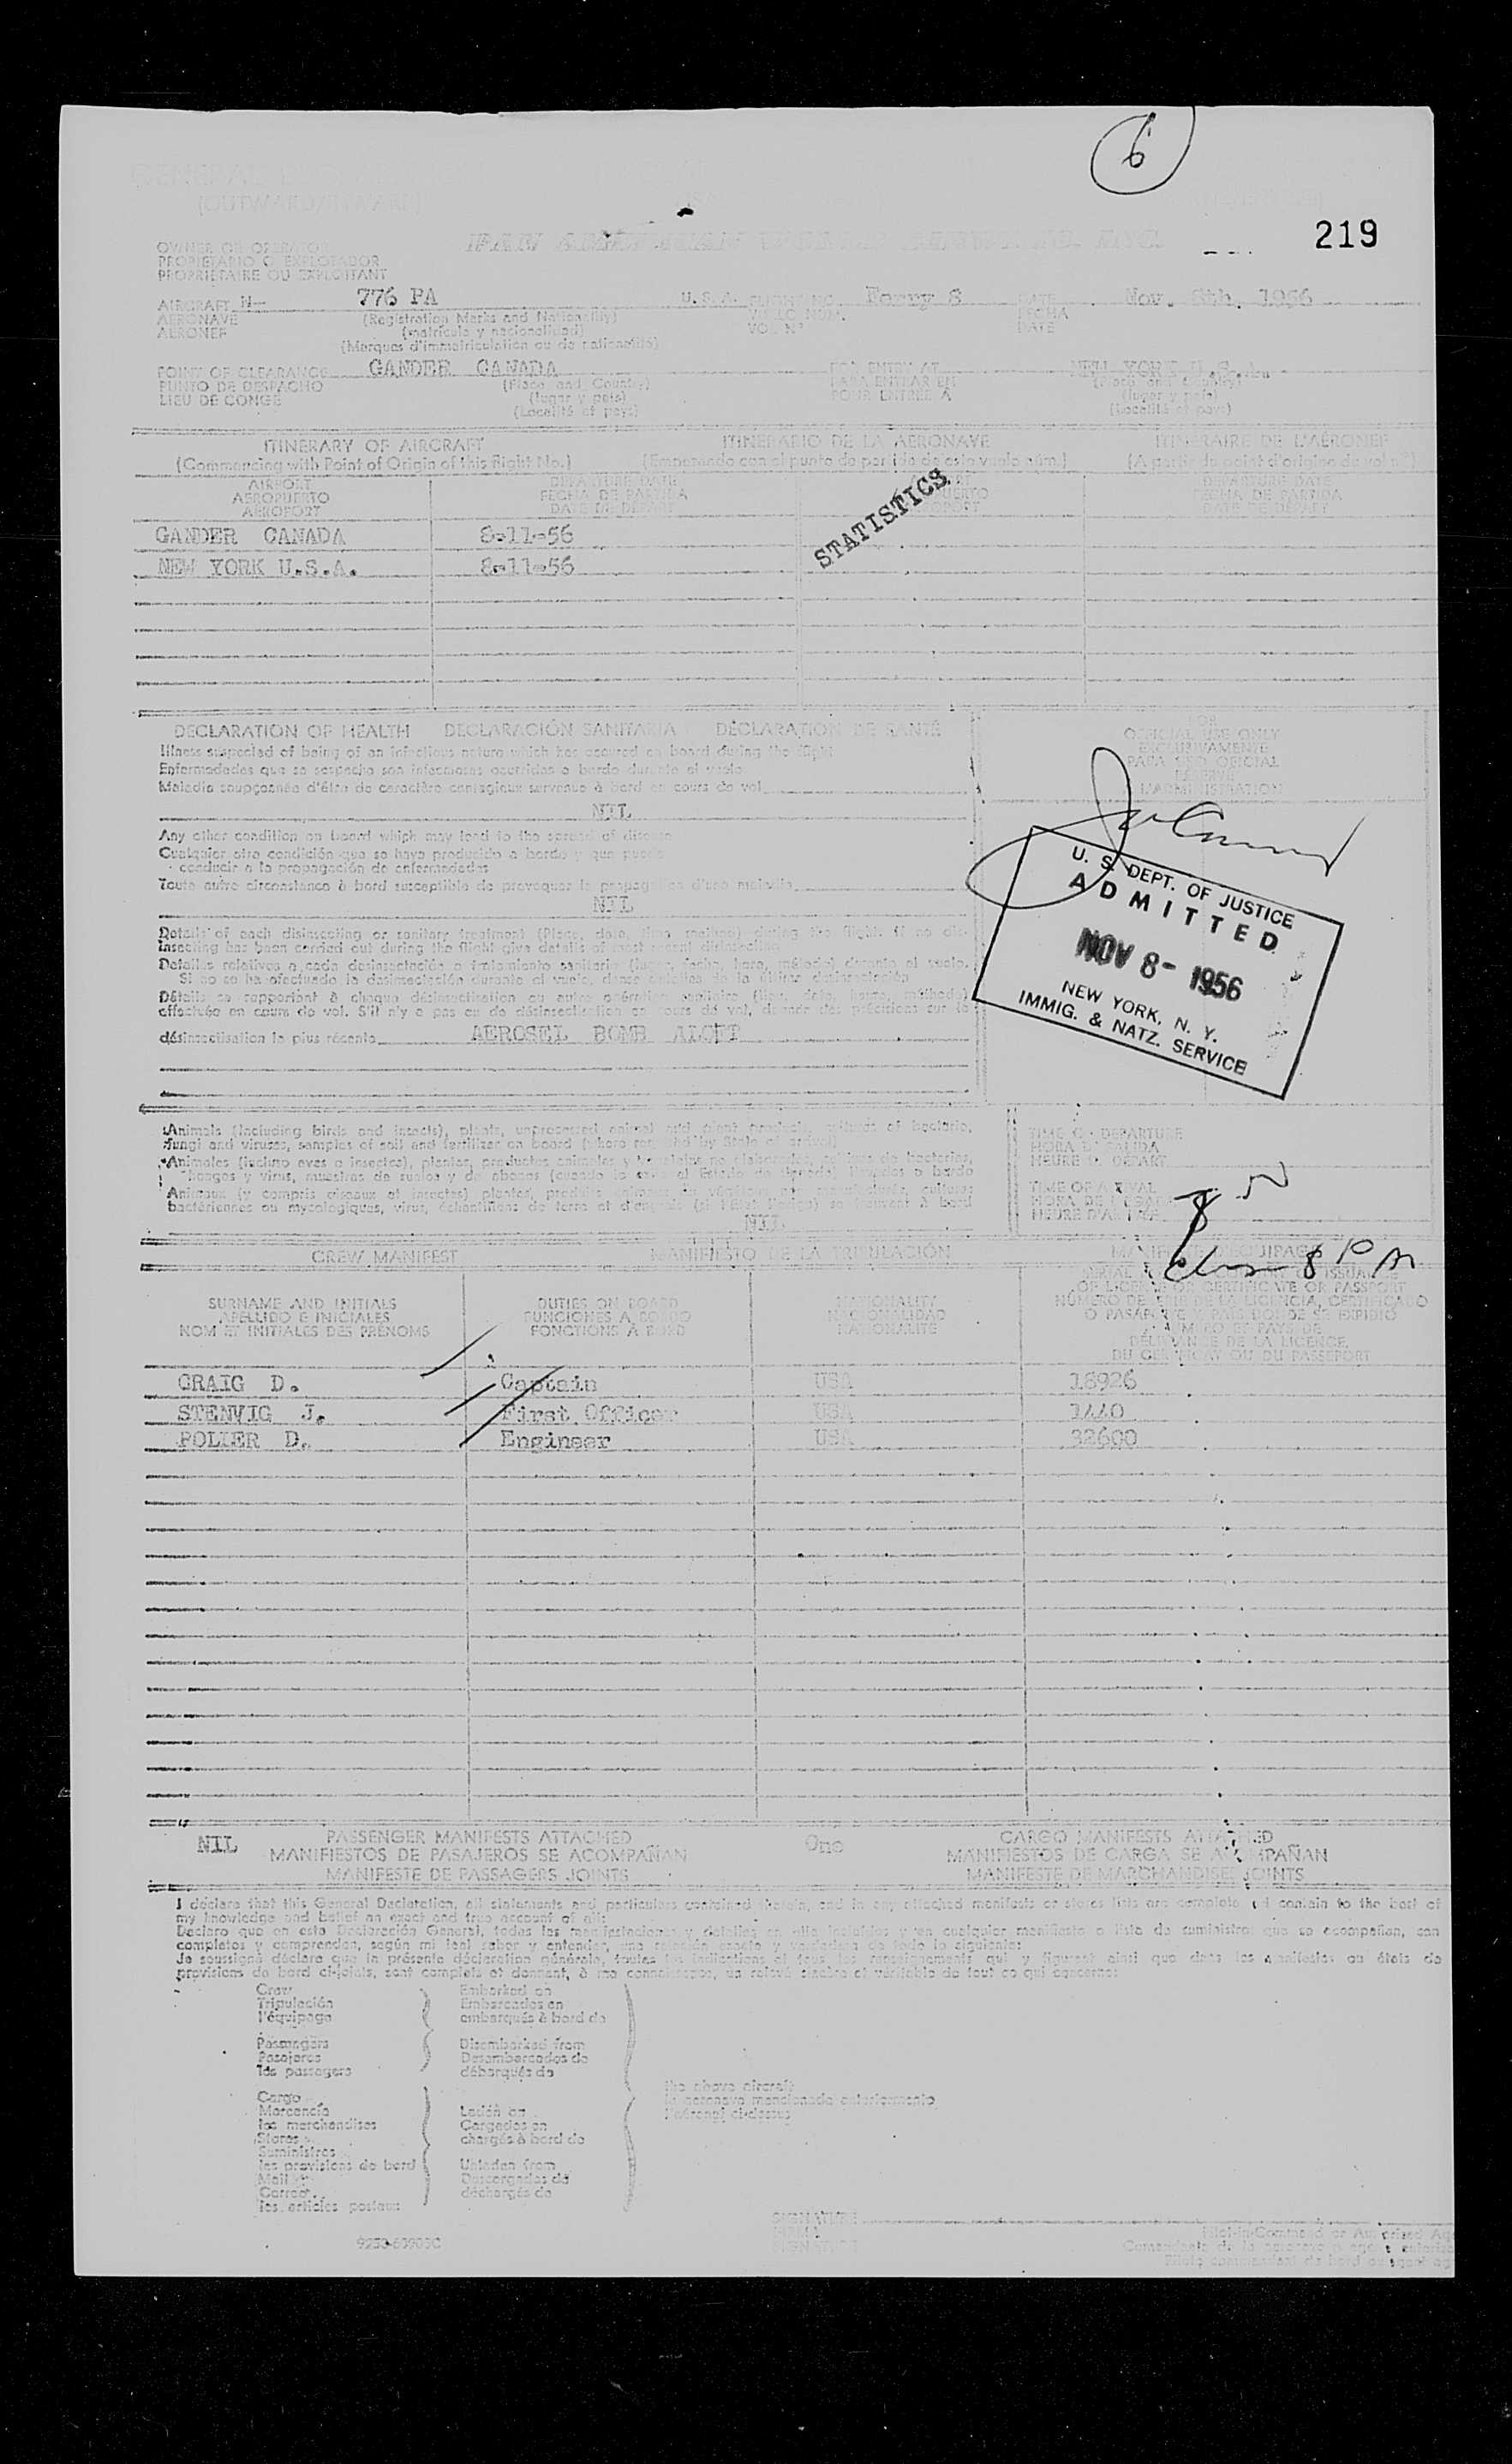 6
219
GENERAL
PAN AMERICAN WORLD AIRWAYS INC
OWNER OR OPERATOR
PROPIETARIO O EXPLOTADOR
PROPRIÉTAIRE OU EXPLOITANT
AIRCRAFT N- 776 PA U.S.A. FLIGHT NO. Ferry 8 DATE Nov. 8th. 1956
AERONAVE (Registration Marks and Nationality) VUELO NÚM. FECHA
AÉRONEF (matrícula y nacionalidad) VOL Nº DATE
(Marques d'immatriculation ou de nationalité)
POINT OF CLEARANCE GANDER CANADA FOR ENTRY AT NEW YORK U.S.A.
PUNTO DE DESPACHO (Place and Country) PARA ENTRAR EN (Place and Country)
LIEU DE CONGÉ (lugar y país) POUR ENTRÉE À (lugar y país)
(Localité et pays) (Localité et pays)
ITINERARY OF AIRCRAFT ITINERARIO DE LA AERONAVE ITINÉRAIRE DE L'AÉRONEF
(Commencing with Point of Origin of this flight No.) (Empezando con el punto de partida de este vuelo núm.) (A partir du point d'origine du vol nº)
AIRPORT DEPARTURE DATE DEPARTURE DATE
AEROPUERTO FECHA DE PARTIDA FECHA DE PARTIDA
AÉROPORT DATE DE DÉPART DATE DE DÉPART
STATISTICS
GANDER CANADA 8-11-56
NEW YORK U.S.A. 8-11-56
DECLARATION OF HEALTH DECLARACIÓN SANITARIA DÉCLARATION DE SANTÉ
Illness suspected of being of an infectious nature which has occured on board during the flight
Enfermedades que se sospecha son infecciosas ocurridas a bordo durante el vuelo
Maladie soupçonnée d'être de caractère contagieux survenue à bord en cours de vol
NIL
Any other condition on board which may lead to the spread of disease
Cualquier otra condición que se haya producido a bordo y que pueda
conducir a la propagación de enfermedades
Toute autre circonstance à bord susceptible de provoquer la propagation d'une maladie
NIL
Details of each disinsecting or sanitary treatment (Place, date, time, method) during the flight. If no dis-
insecting has been carried out during the flight give details of most recent disinsecting
Detalles relativos a cada desinsectación o tratamiento sanitario (lugar, fecha, hora, método) durante el vuelo.
Si no se ha efectuado la desinsectación durante el vuelo, dense detalles de la última desinsectación
Détails se rapportant à chaque désinsectisation ou autre opération sanitaire (lieu, date, heure, méthode)
effectuée en cours de vol. S'il n'y a pas eu de désinsectisation en cours de vol, donner des précisions sur la
désinsectisation la plus récente AEROSEL BOMB ALOFT
FOR
OFFICIAL USE ONLY
EXCLUSIVAMENTE
PARA USO OFICIAL
RÉSERVÉ
L'ADMINISTRATION
U. S. DEPT. OF JUSTICE
ADMITTED
NOV 8- 1956
NEW YORK, N. Y.
IMMIG. & NATZ. SERVICE
Animals (including birds and insects), plants, unprocessed animal and plant products, cultures of bacteria,
fungi and viruses, samples of soil and fertilizer on board (where required by State of arrival)
Animales (incluso aves e insectos), plantas, productos animales y vegetales no elaborados, cultivos de bacterias,
hongos y virus, muestras de suelos y de abonos (cuando lo exija el Estado de llegada) llevados a bordo
Animaux (y compris oiseaux et insectes) plantes, produits
bactériennes ou mycologiques, virus, échantillons de terre et d'engrais
NIL
TIME OF DEPARTURE
HORA DE SALIDA
HEURE DE DÉPART
TIME OF ARRIVAL
HORA DE LLEGADA
HEURE D'ARRIVÉE
8 PM
CREW MANIFEST MANIFIESTO DE LA TRIPULACIÓN MANIFESTE D'ÉQUIPAGE
SURNAME AND INITIALS DUTIES ON BOARD NATIONALITY
APELLIDO E INICIALES FUNCIONES A BORDO NACIONALIDAD
NOM ET INITIALES DES PRÉNOMS FONCTIONS À BORD NATIONALITÉ
OF LICENCE OR CERTIFICATE OR PASSPORT
NÚMERO DE SERIE DE LA LICENCIA, CERTIFICADO
O PASAPORTE Y PAÍS DONDE SE EXPIDIÓ
NUMÉRO ET PAYS DE
DÉLIVRANCE DE LA LICENCE,
DU CERTIFICAT OU DU PASSEPORT
CRAIG D. Captain USA 18926
STENVIG J. First Officer USA 1440
POLIER D. Engineer USA 32600
NIL PASSENGER MANIFESTS ATTACHED One CARGO MANIFESTS ATTACHED
MANIFIESTOS DE PASAJEROS SE ACOMPAÑAN MANIFIESTOS DE CARGA SE ACOMPAÑAN
MANIFESTE DE PASSAGERS JOINTS MANIFESTE DE MARCHANDISES JOINTS
I declare that this General Declaration, all statements and particulars contained therein, and in any attached manifests or stores lists are complete and contain to the best of
my knowledge and belief an exact and true account of all:
Declaro que en esta Declaración General, todas las manifestaciones y detalles en ella incluidos y en cualquier manifiesto o lista de suministros que se acompañan, son
completos y comprenden, según mi leal saber y entender, una relación exacta y verdadera de todo lo siguiente:
Je soussigné déclare que la présente déclaration générale, toutes les indications et tous les renseignements qui y figurent ainsi que dans les manifestes ou états de
provisions de bord ci-joints, sont complets et donnent, à ma connaissance, un relevé sincère et véritable de tout ce qui concerne:
Crew Embarked on
Tripulación Embarcados en
l'équipage embarqués à bord de
Passengers Disembarked from
Pasajeros Desembarcados de
les passagers débarqués de
the above aircraft
la aeronave mencionada anteriormente
l'aéronef ci-dessus
Cargo
Mercancía Laden on
les merchandises Cargados en
Stores chargés à bord de
Suministros
les provisions de bord Unladen from
Mail Descargados de
Correo déchargés de
les articles postaux
SIGNATURE
FIRMA Pilot-in-Command or Authorised
SIGNATURE